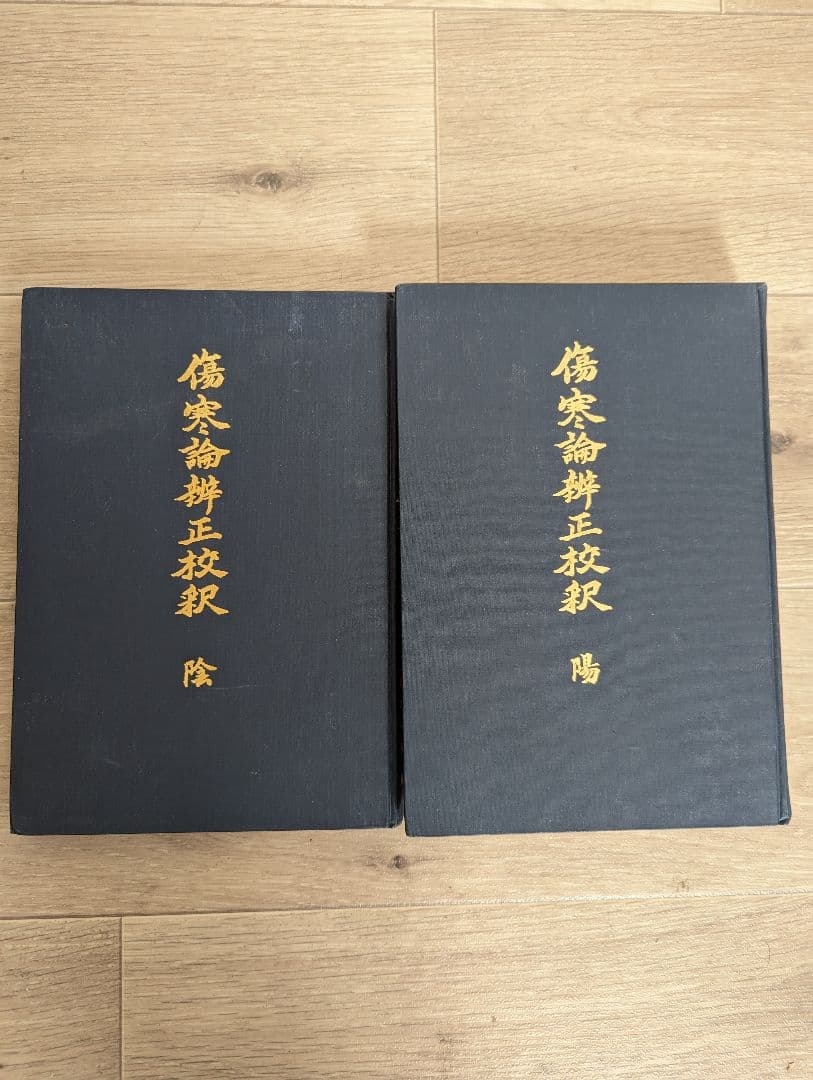 傷寒論辨正校釈 陰
傷寒論辨正校釈 陽